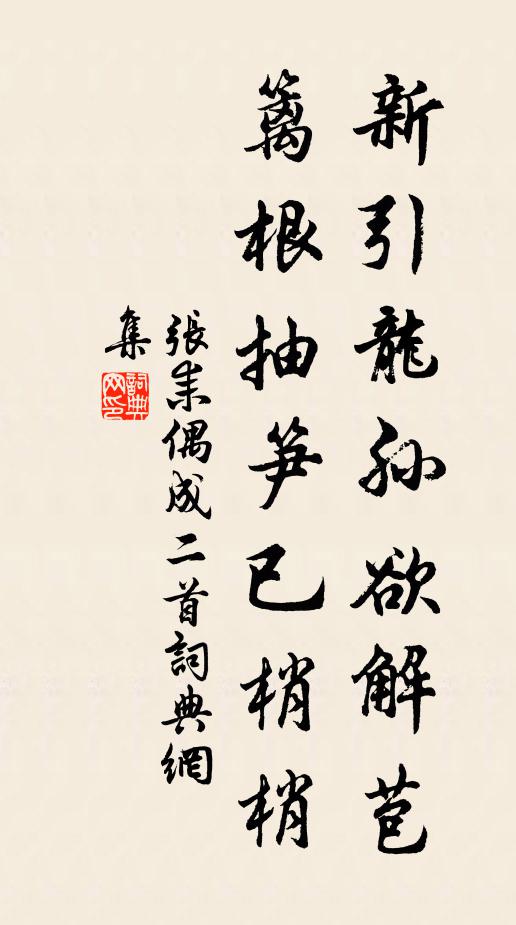 新引龍孙欲解苞
籬根抽笋已梢梢
張耒偶成二首詞典網
集
詞典网印